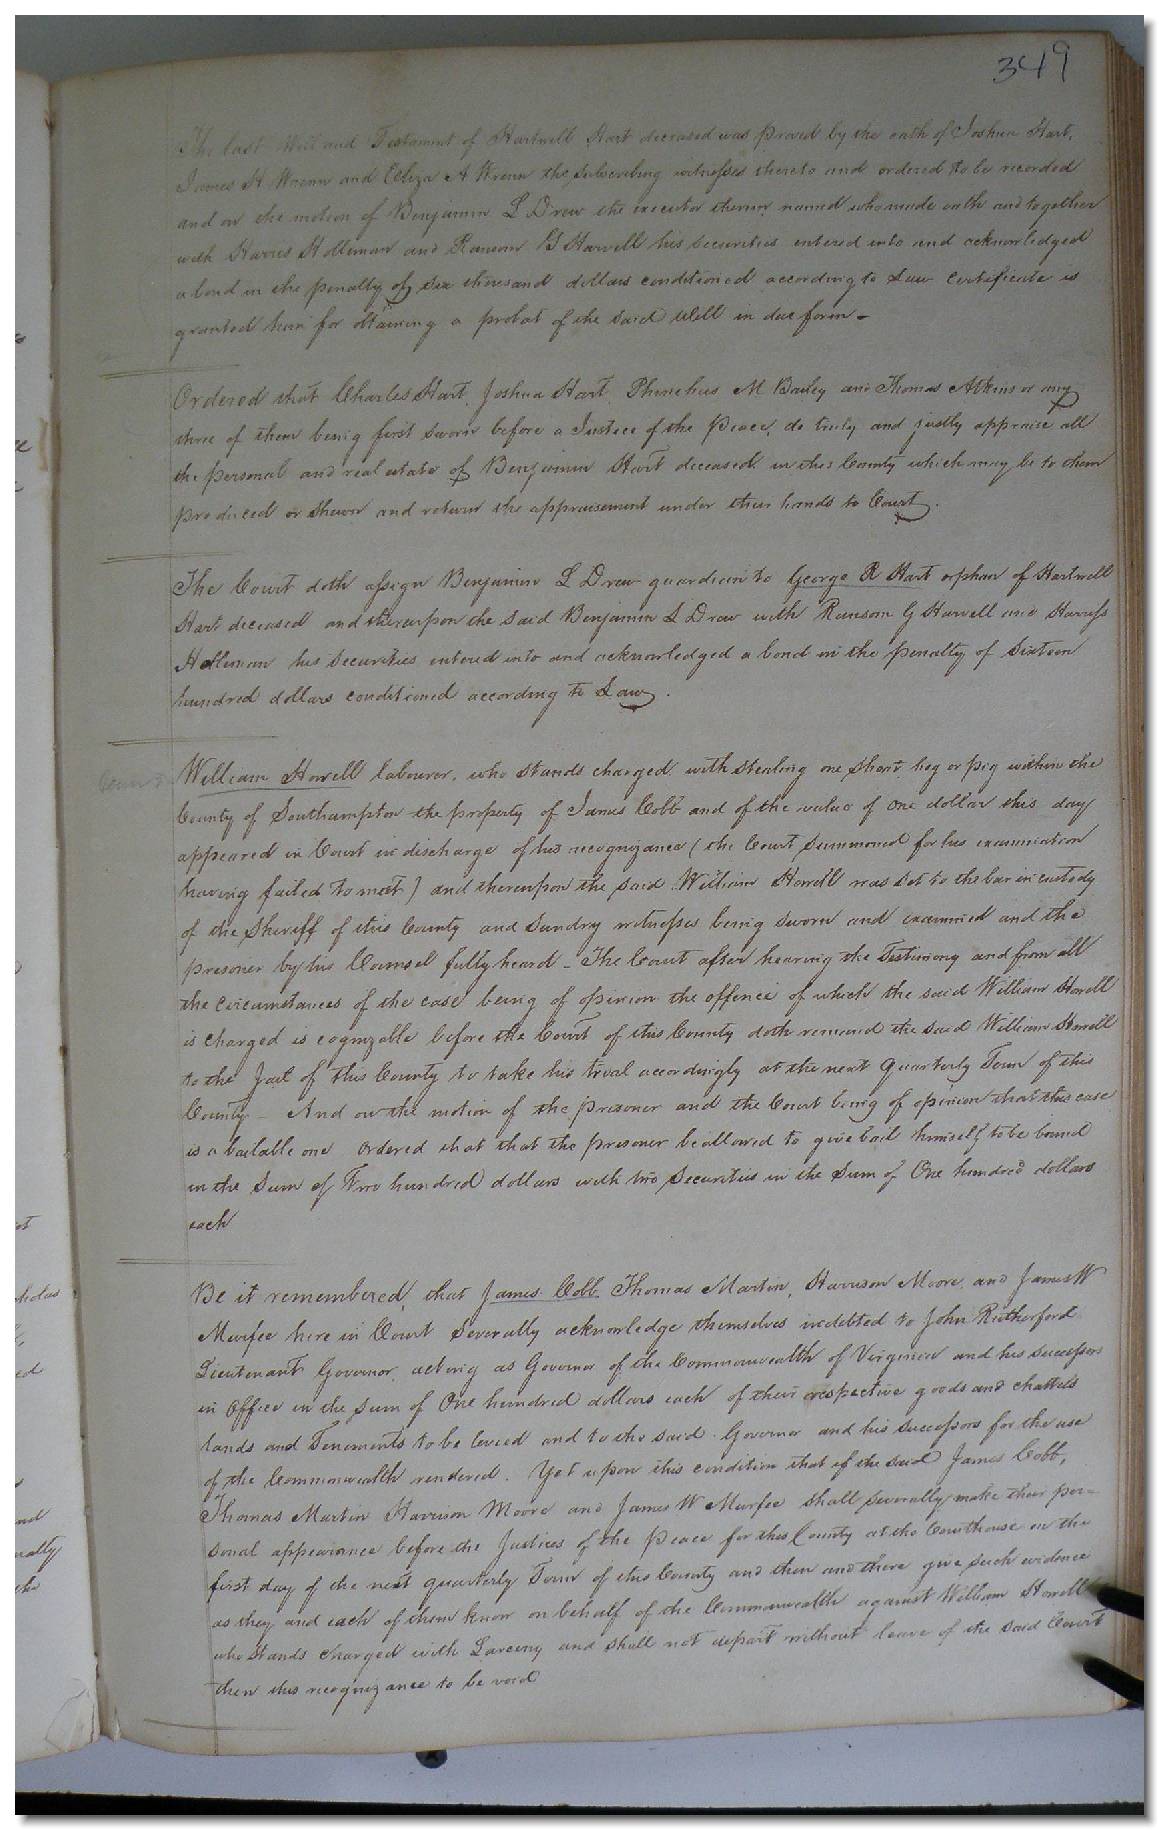 349
The last Will and Testament of Hartwell Hart deceased was proved by the oath of Joshua Hart,
James H Wrenn and Eliza A Wrenn the subscribing witnesses thereto and ordered to be recorded
and on the motion of Benjamin L Drew the executor therein named who made oath and together
with Harris Holleman and Ransom G Harvell his securities entered into and acknowledged
a bond in the penalty of six thousand dollars conditioned according to Law certificate is
granted him for obtaining a probat of the said Will in due form -
Ordered that Charles Hart, Joshua Hart, Phinehas M Bailey and Thomas Atkins or any
three of them being first sworn before a Justice of the Peace, do truly and justly appraise all
the personal and real estate of Benjamin Hart deceased in this County which may be to them
produced or shewn and return the appraisement under their hands to Court.
The Court doth assign Benjamin L Drew guardian to George R Hart orphan of Hartwell
Hart deceased and thereupon the said Benjamin L Drew with Ransom G Harvell and Harriss
Holleman his securities entered into and acknowledged a bond in the penalty of Sixteen
hundred dollars conditioned according to Law.
William Howell labourer, who stands charged with stealing one shoat, hog or pig within the
County of Southampton the property of James Cobb and of the value of one dollar this day
appeared in Court in discharge of his recognizance (the Court summoned for his examination
having failed to meet) and thereupon the said William Howell was set to the bar in custody
of the Sheriff of this County and Sundry witnesses being sworn and examined and the
prisoner by his Counsel fully heard - The Court after hearing the Testimony and from all
the circumstances of the case being of opinion the offence of which the said William Howell
is charged is cognizable before the Court of this County doth remand the said William Howell
to the Jail of this County to take his trial accordingly at the next Quarterly Term of this
County - And on the motion of the prisoner and the Court being of opinion that this case
is a bailable one ordered that that the prisoner be allowed to give bail himself to be bound
in the Sum of Two hundred dollars with two Securities in the Sum of One hundred dollars
each
Be it remembered, that James Cobb, Thomas Martin, Harrison Moore and James W
Murfee here in Court Severally acknowledge themselves indebted to John Rutherford
Lieutenant Governor, acting as Governor of the Commonwealth of Virginia and his successors
in Office in the sum of One hundred dollars each of their respective goods and chattels
lands and Tenements to be levied and to the said Governor and his successors for the use
of the Commonwealth rendered. Yet upon this condition that if the said James Cobb,
Thomas Martin Harrison Moore and James W Murfee shall severally make their per=
sonal appearance before the Justices of the peace for this County at the Courthouse on the
first day of the next quarterly Term of this County and then and there give such evidence
as they and each of them know on behalf of the Commonwealth against William Howell
who stands charged with Larceny and shall not depart without leave of the said Court
then this recognizance to be void